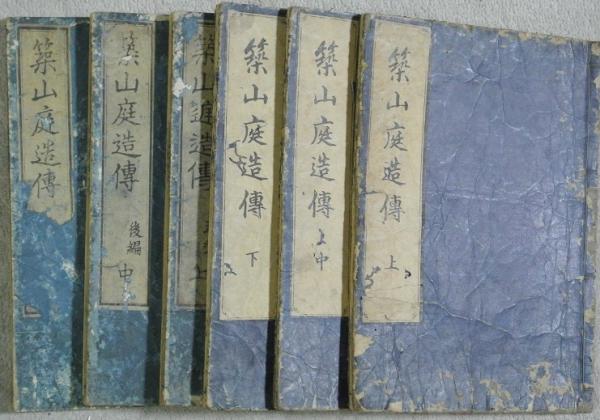 築山庭造傳 上
築山庭造傳 上中
築山庭造傳 下
築山庭造傳 上
築山庭造傳 後編 中
築山庭造傳